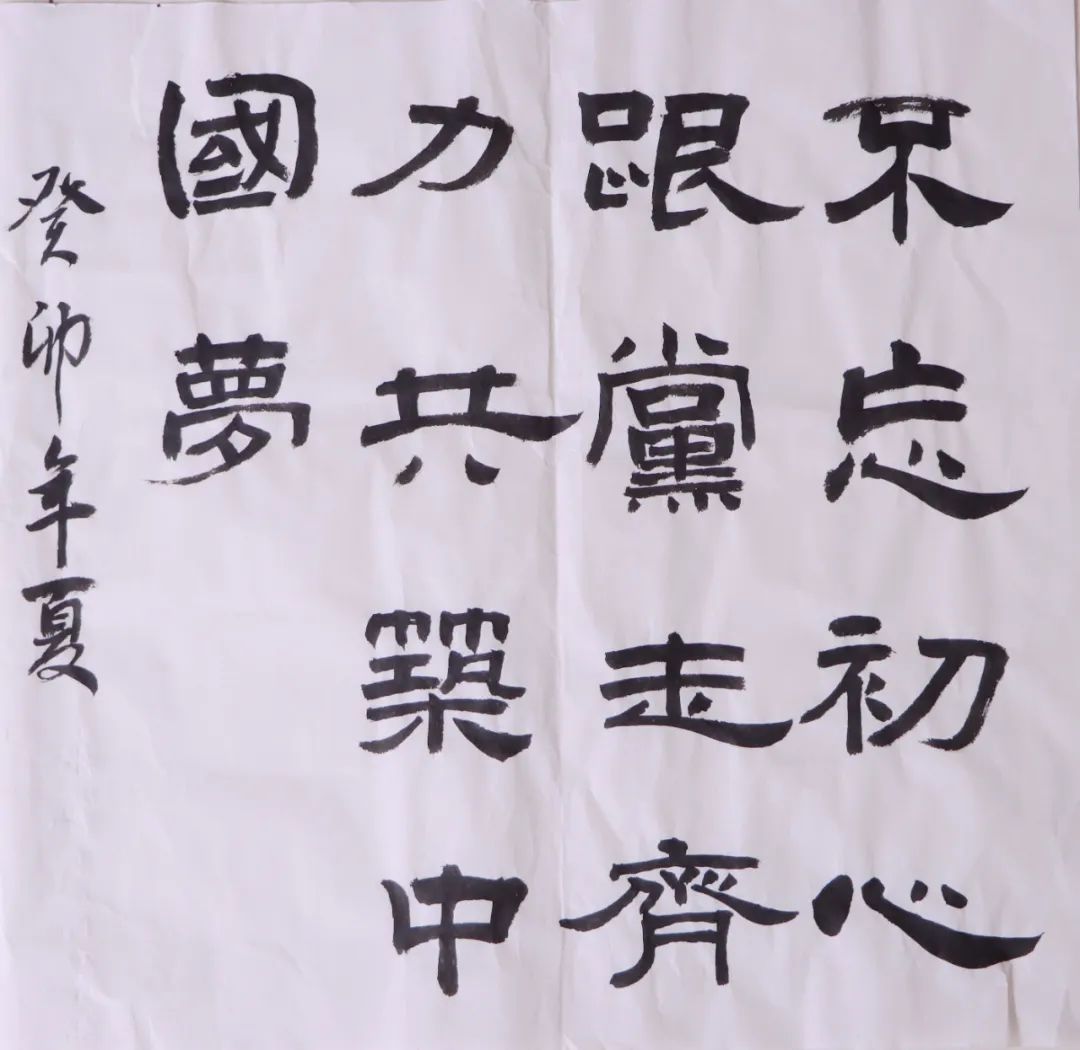 不忘初心
跟黨走齊
力共築中
國夢
癸卯年夏